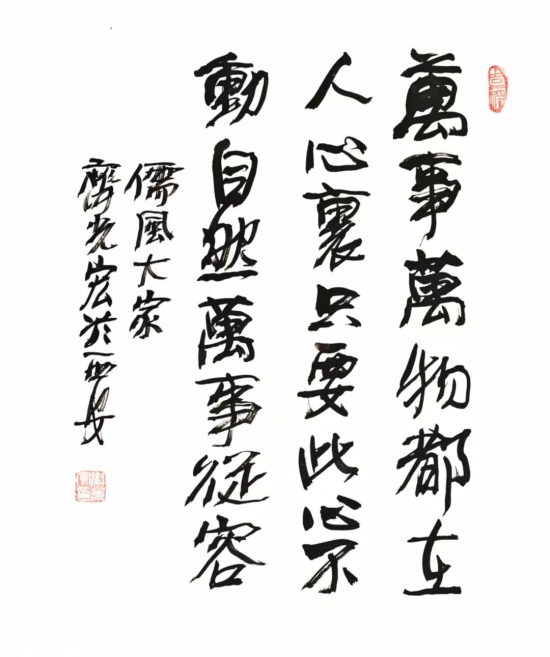 萬事萬物都在
人心裏只要此心不
動自然萬事從容
儒風大家
齊光宏於西安